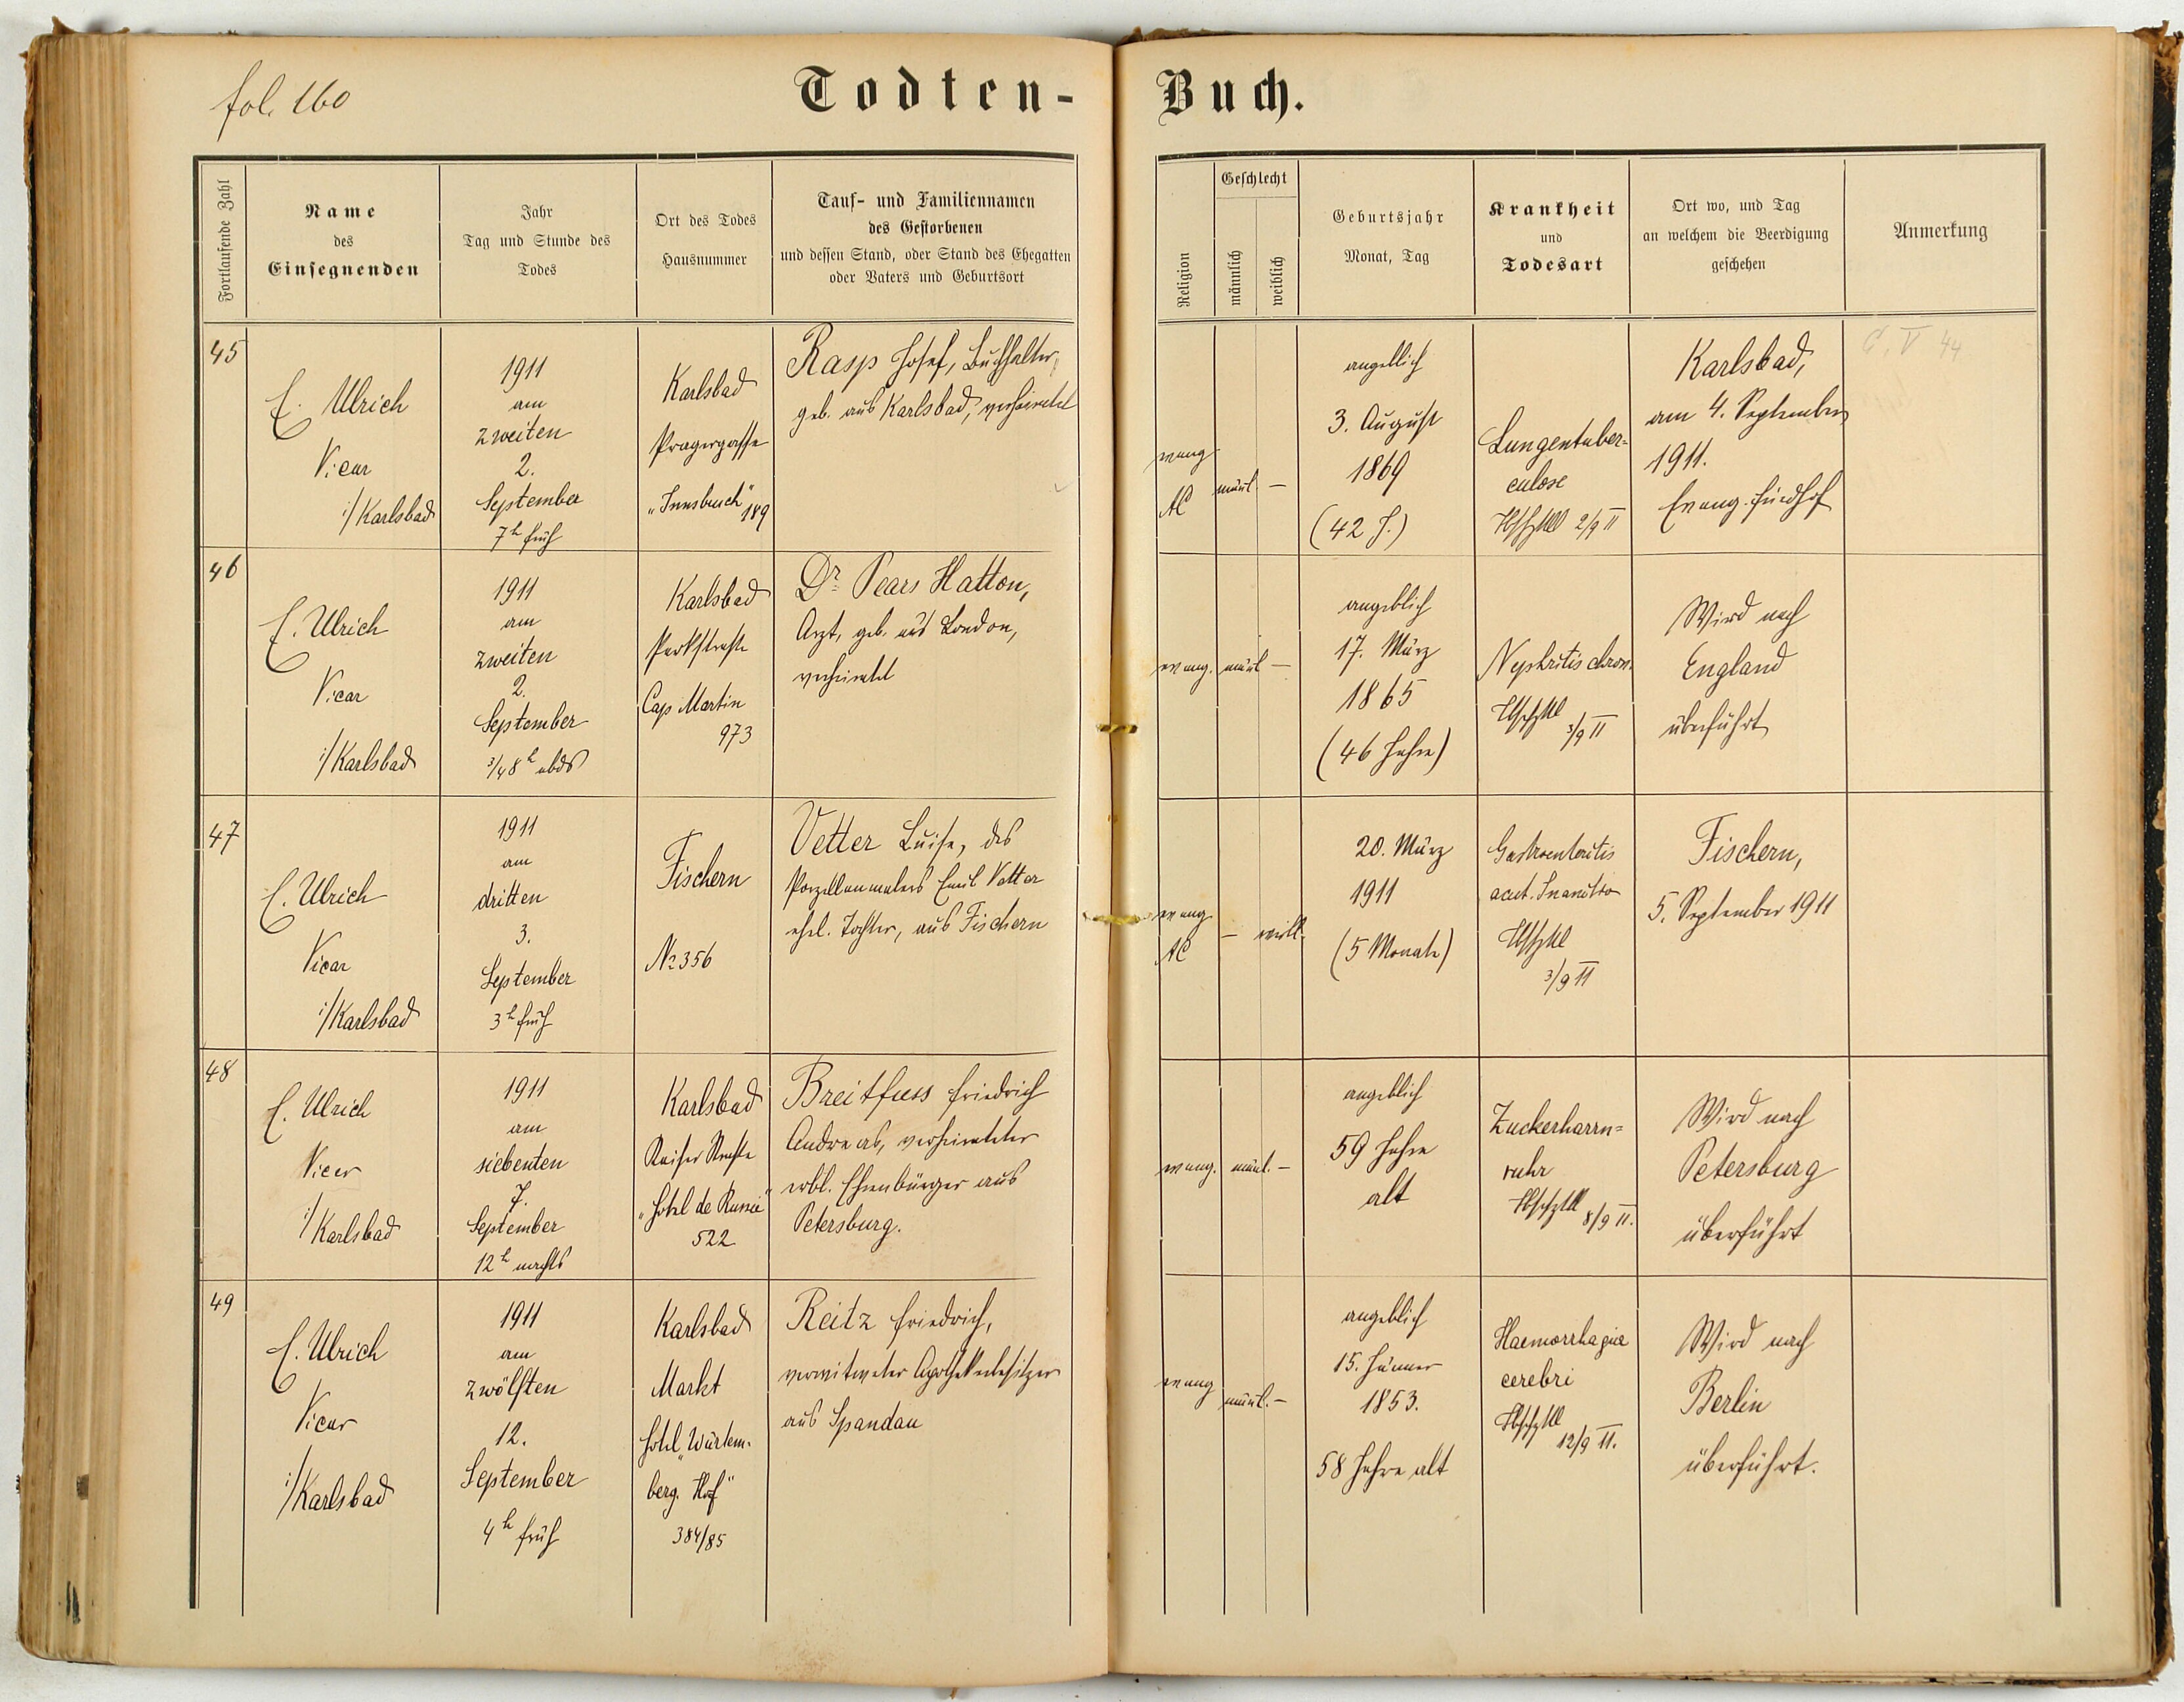 fol. 160
Todten-Buch.
Fortlaufende Zahl
Name
des
Einsegnenden
Jahr
Tag und Stunde des
Todes
Ort des Todes
Hausnummer
Tauf- und Familiennamen
des Gestorbenen
und dessen Stand, oder Stand des Ehegatten
oder Vaters und Geburtsort
Religion
Geschlecht
männlich
weiblich
Geburtsjahr
Monat, Tag
Krankheit
und
Todesart
Ort wo, und Tag
an welchem die Beerdigung
geschehen
Anmerkung
45
E. Ulrich
Vicar
i/Karlsbad
1911
am
zweiten
2.
September
7h früh
Karlsbad
Pragergasse
"Innsbruck"
189
Rasp Josef, Buchhalter,
geb. aus Karlsbad, verheiratet
evang
AC
männl. —
angeblich
3. August
1869
(42 J.)
Lungentuber-
culose
2/9 11
Karlsbad,
am 4. September
1911.
Evang. Friedhof
C. V 44
46
E. Ulrich
Vicar
i/Karlsbad
1911
am
zweiten
2.
September
3/4 8h abds
Karlsbad
Parkstraße
Cap Martin
973
Dr. Pears Hatton,
Arzt, geb. aus London,
verheiratet
evang.
männl —
angeblich
17. März
1865
(46 Jahre)
Nephritis chron.
3/9 11
Wird nach
England
überführt
47
E. Ulrich
Vicar
i/Karlsbad
1911
am
dritten
3.
September
3h früh
Fischern
No 356
Vetter Luise, des
Porzellanmalers Emil Vetter
ehel. Tochter, aus Fischern
evang
AC
— weibl.
20. März
1911
(5 Monate)
Gastroenteritis
acut. Inanitio
3/9 11
Fischern,
5. September 1911
48
E. Ulrich
Vicar
i/Karlsbad
1911
am
siebenten
7.
September
12h nachts
Karlsbad
Kaiser Straße
"Hotel de Russie"
522
Breitfuss Friedrich
Andreas, verheirateter
erbl. Ehrenbürger aus
Petersburg.
evang.
männl. —
angeblich
59 Jahre
alt
Zuckerharrn-
ruhr
8/9 11.
Wird nach
Petersburg
überführt
49
E. Ulrich
Vicar
i/Karlsbad
1911
am
zwölften
12.
September
4h früh
Karlsbad
Markt
Hotel "Würtem-
berg. Hof"
384/85
Reitz Friedrich,
verwitweter Apothekenbesitzer
aus Spandau
evang
männl. —
angeblich
15. Jänner
1853.
58 Jahre alt
Haemorrhagia
cerebri
12/9 11.
Wird nach
Berlin
überführt.